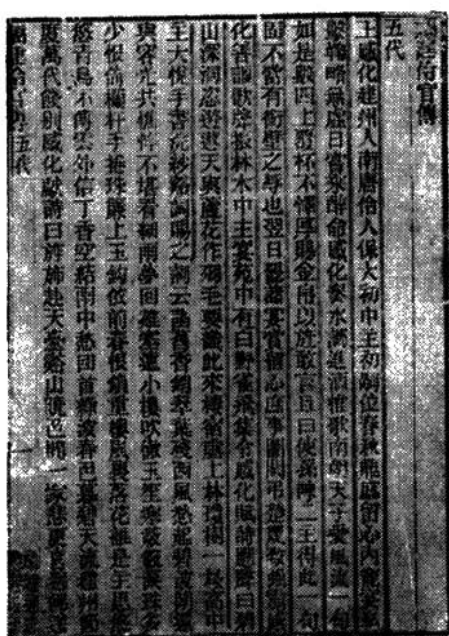 伶官傳
五代
王感化建州人南唐伶人保大初中主初嗣位春秋鼎盛留心內寵宴
略無虛日嘗乘醉命感化奏水調進酒惟歌南朝天子愛風流一句
如是數四上杯不懌厚賜金帛以旌敢言且曰使孫陳二主得此一句
固不當有銜璧之辱也翌日罷諸宴賞留心庶事圖閩弔楚
化善謳歌聲振林木中主宴苑中有白野雀飛集令感化賦詩應聲曰碧
山深洞恣遊遨天與蘆花作羽毛要識此來棲宿處上林瓊樹一枝高中
主大悅手書浣紗溪詞賜之詞云菡萏香銷翠葉殘西風愁起碧波間還
與容光共憔悴不堪看細雨夢回雞塞遠小樓吹徹玉笙寒簌簌淚珠多
少恨倚欄杆手捲珠簾上玉鉤依前春恨鎖重樓風裏落花誰是主思悠
悠青鳥不傳雲外信丁香空結雨中愁回首綠波春色暮接天流建州節
度代餞別感化獻詩曰旌旆赴天臺溪山曉色開家悲更喜迎佛送
伶官傳五代 一